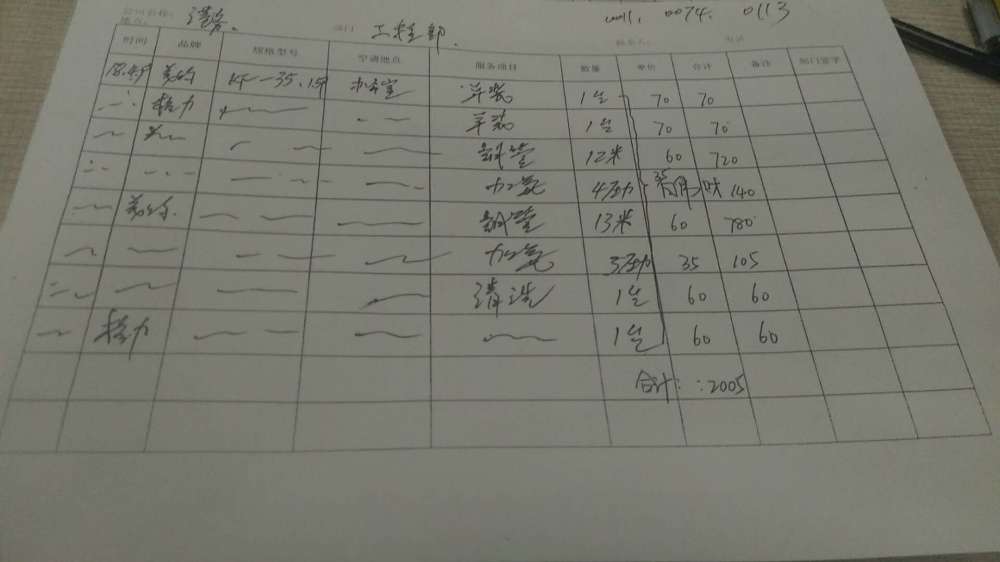 港务.
工程部.
0074. 0113
时间 品牌 规格型号 空调地点 服务项目 数量 单价 合计 备注 部门签字
美的 KF-35.1 办公室 拆装 1台 70 70
格力 拆装 1台 70 70
铜管 12米 60 720
加氟 4压力 35 140
美的. 铜管 13米 60 780
加氟 3压力 35 105
清洗 1台 60 60
格力 1台 60 60
合计: :2005